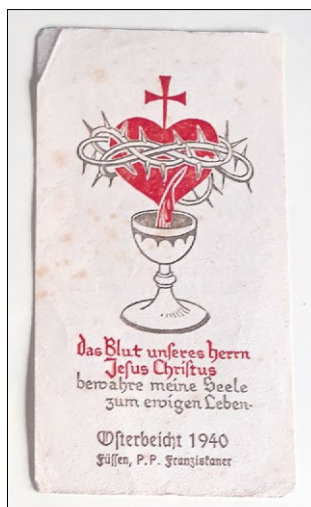 das Blut unseres Herrn
Jesus Christus
bewahre meine Seele
zum ewigen Leben.
Osterbeicht 1940
Füssen, P.P. Franziskaner